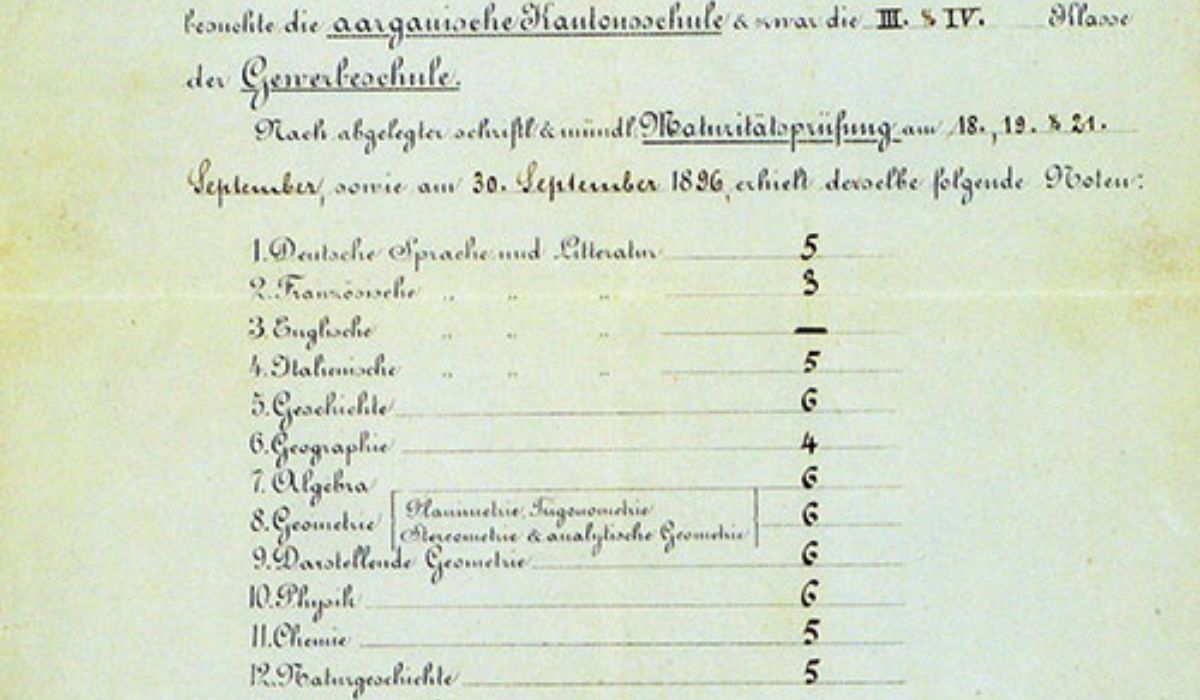 besuchte die aargauische Kantonsschule & zwar die III. & IV. Klasse
der Gewerbeschule.
Nach abgelegter schriftl & mündl. Maturitätsprüfung am 18., 19. & 21.
September, sowie am 30. September 1896, erhielt derselbe folgende Noten:
1. Deutsche Sprache und Litteratur 5
2. Französische " " " 3
3. Englische " " " —
4. Italienische " " " 5
5. Geschichte 6
6. Geographie 4
7. Algebra 6
8. Geometrie [Planimetrie, Trigonometrie
Stereometrie & analytische Geometrie] 6
9. Darstellende Geometrie 6
10. Physik 6
11. Chemie 5
12. Naturgeschichte 5